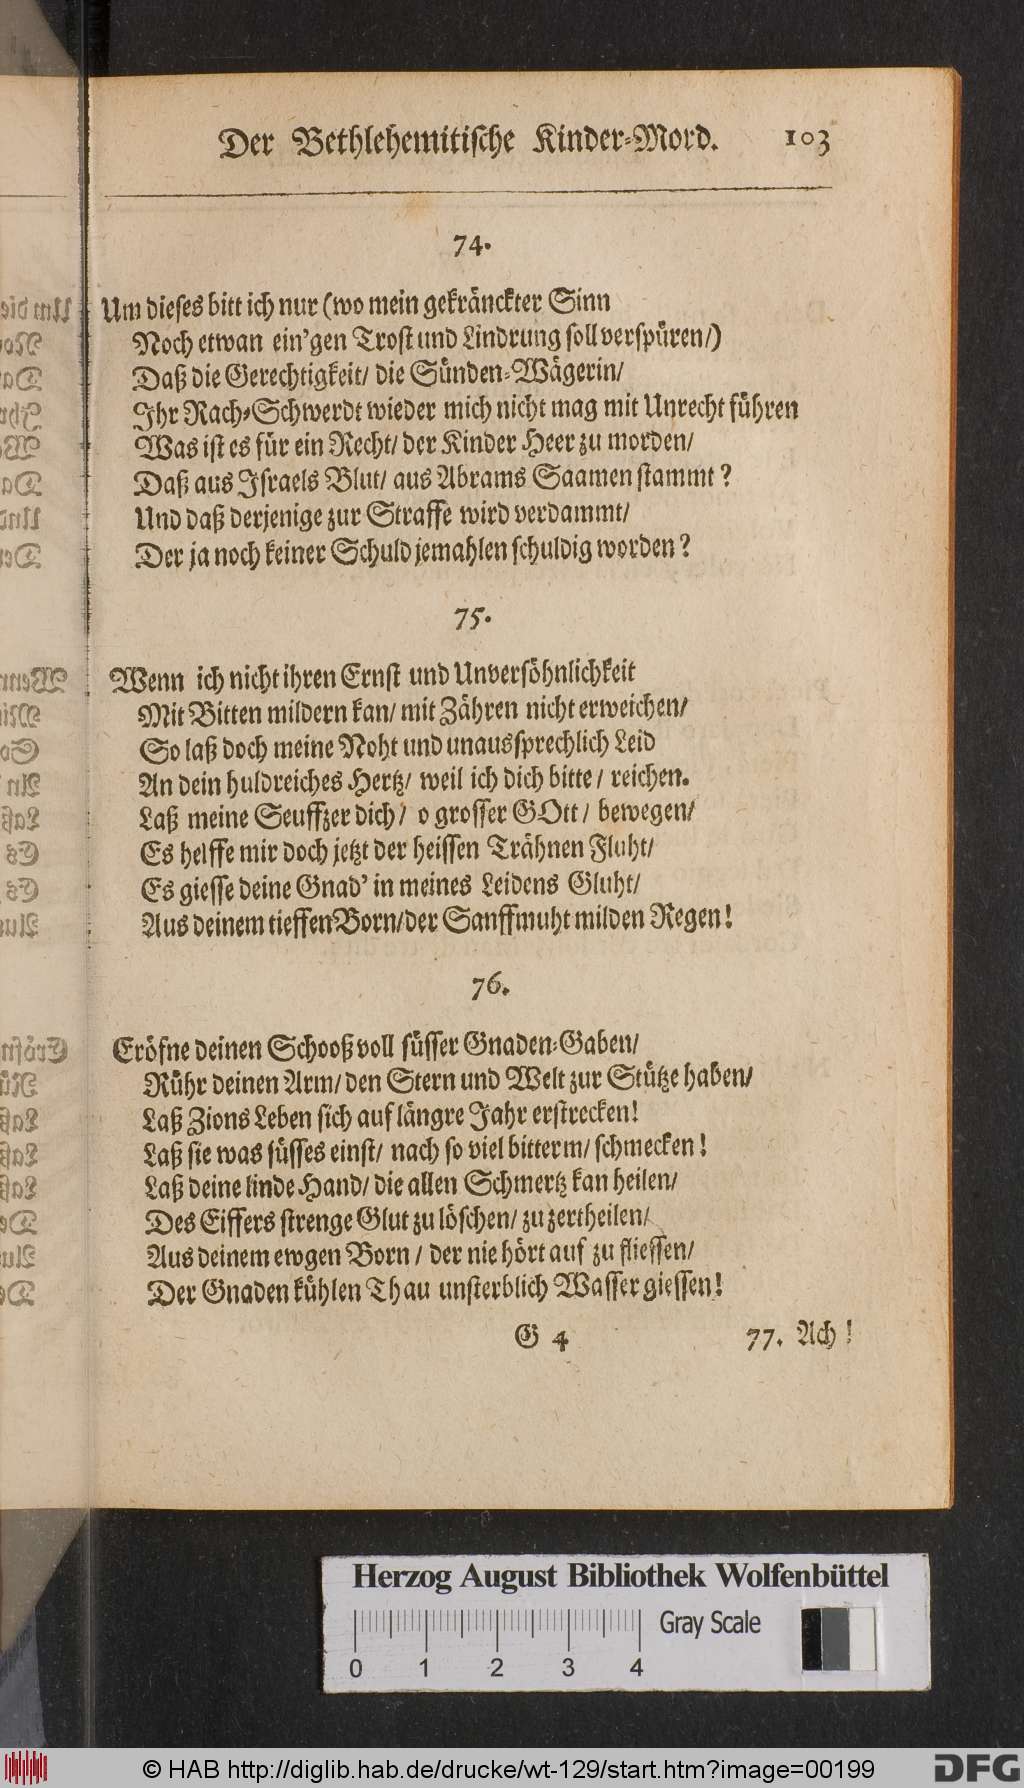 Der Bethlehemitische Kinder-Mord. 103
74.
Um dieses bitt ich nur (wo mein gekränckter Sinn
Noch etwan ein'gen Trost und Lindrung soll verspüren/)
Daß die Gerechtigkeit/ die Sünden-Wägerin/
Ihr Rach-Schwerdt wieder mich nicht mag mit Unrecht führen
Was ist es für ein Recht/ der Kinder Heer zu morden/
Daß aus Israels Blut/ aus Abrams Saamen stammt?
Und daß derjenige zur Straffe wird verdammt/
Der ja noch keiner Schuld jemahlen schuldig worden?
75.
Wenn ich nicht ihren Ernst und Unversöhnlichkeit
Mit Bitten mildern kan/ mit Zähren nicht erweichen/
So laß doch meine Noht und unaussprechlich Leid
An dein huldreiches Hertz/ weil ich dich bitte/ reichen.
Laß meine Seuffzer dich/ o grosser GOtt/ bewegen/
Es helffe mir doch jetzt der heissen Trähnen Fluht/
Es giesse deine Gnad' in meines Leidens Gluht/
Aus deinem tieffen Born/ der Sanffmuht milden Regen!
76.
Eröfne deinen Schooß voll süsser Gnaden-Gaben/
Rühr deinen Arm/ den Stern und Welt zur Stütze haben/
Laß Zions Leben sich auf längre Jahr erstrecken!
Laß sie was süsses einst/ nach so viel bitterm/ schmecken!
Laß deine linde Hand/ die allen Schmertz kan heilen/
Des Eiffers strenge Glut zu löschen/ zu zertheilen/
Aus deinem ewgen Born/ der nie hört auf zu fliessen/
Der Gnaden kühlen Thau unsterblich Wasser giessen!
G 4 77. Ach!
Herzog August Bibliothek Wolfenbüttel
Gray Scale
0 1 2 3 4
© HAB http://diglib.hab.de/drucke/wt-129/start.htm?image=00199
DFG